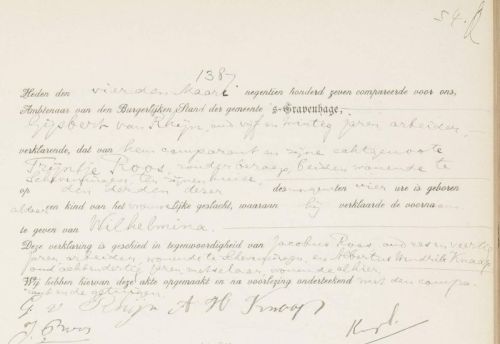 54.
1387
Heden den vierden Maart negentien honderd zeven compareerde voor ons,
Ambtenaar van den Burgerlijken Stand der gemeente 's-Gravenhage,
Gijsbert van Rhijn, oud vijf en twintig jaren, arbeider,
verklarende, dat van hem comparant en zijne echtgenoote
Trijntje Roos, zonder beroep, beiden wonende te
Scheveningen, te zijnen huize,
op den derden dezer des morgens ten vier ure is geboren
aldaar een kind van het vrouwelijke geslacht, waaraan hij verklaarde de voornaam
te geven van Wilhelmina.
Deze verklaring is geschied in tegenwoordigheid van Jacobus Roos, oud zes en veertig
jaren, arbeider, wonende te Scheveningen, en Albertus Hendrik Knaap
oud achtendertig jaren, metselaar, wonende alhier.
Wij hebben hiervan deze akte opgemaakt en na voorlezing onderteekend met den compa-
rant en de getuigen.
G. v Rhijn A H Knaap
J. Roos